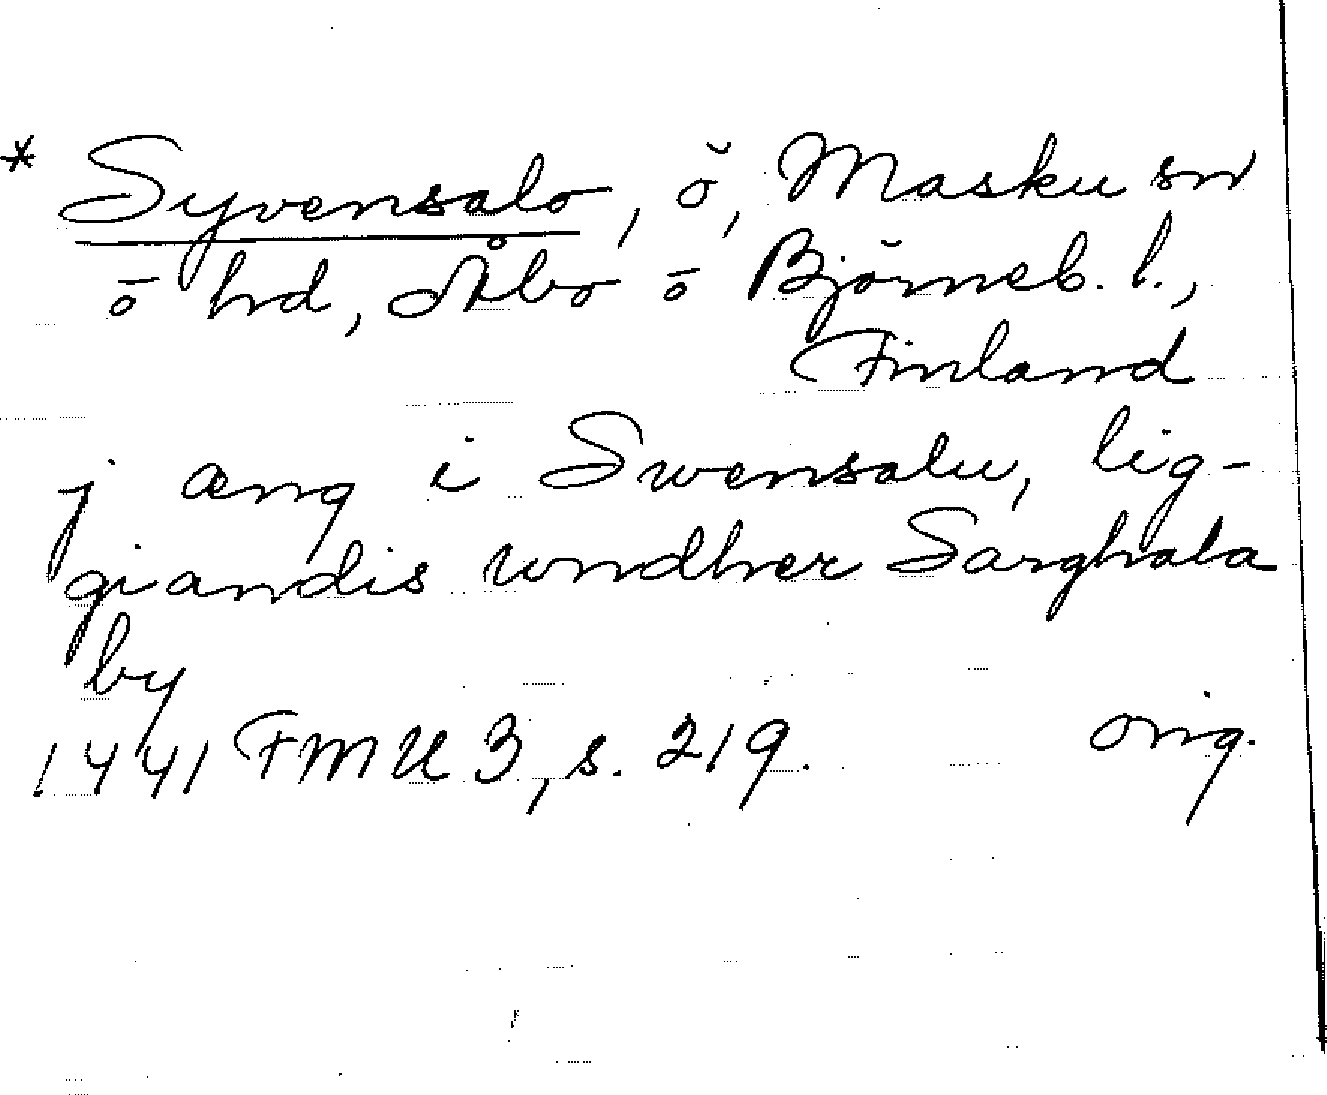 * Syvensalo, ö, Masku sn
o hd, Åbo o Björneb. l.,
Finland
j æng i Swensalu, lig-
giandis wndher Sarghala
by
1441 FMU 3, s. 219. orig.